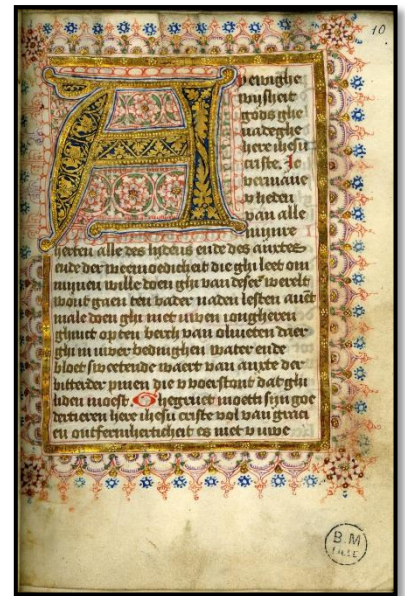 10
A
y ewighe
wijsheit
gods ghe
nadeghe
here ihesu
criste. Ic
vermane
v heten
van alle
mijnre
herten alle des lydens ende des anxtes
ende der weemoedicheit die ghi leet om
mijnen wille doen ghi van deser werelt
wout gaen ten vader naden lesten auent
male doen ghi met uwen iongheren
ghinct op ten berch van olyueten daer
ghi in uwer bedinghen water ende
bloet sweetende waert van anxte der
bitterder pinen die v voerstont dat ghi
liden moest. Ghegruet moetti sijn goe
dertieren here ihesu criste vol van graci
en ontfermherticheit es met v uwe
B.M
LILLE